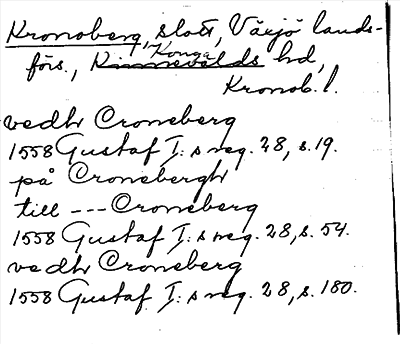 Kronoberg, slott, Växjö lands-
förs., Konga Kinnevalds hd,
Kronob. l.
vedh Croneberg
1558 Gustaf I:s reg. 28, s. 19.
på Cronebergh
till --- Croneberg
1558 Gustaf I:s reg. 28, s. 54.
vedh Croneberg
1558 Gustaf I:s reg. 28, s. 180.